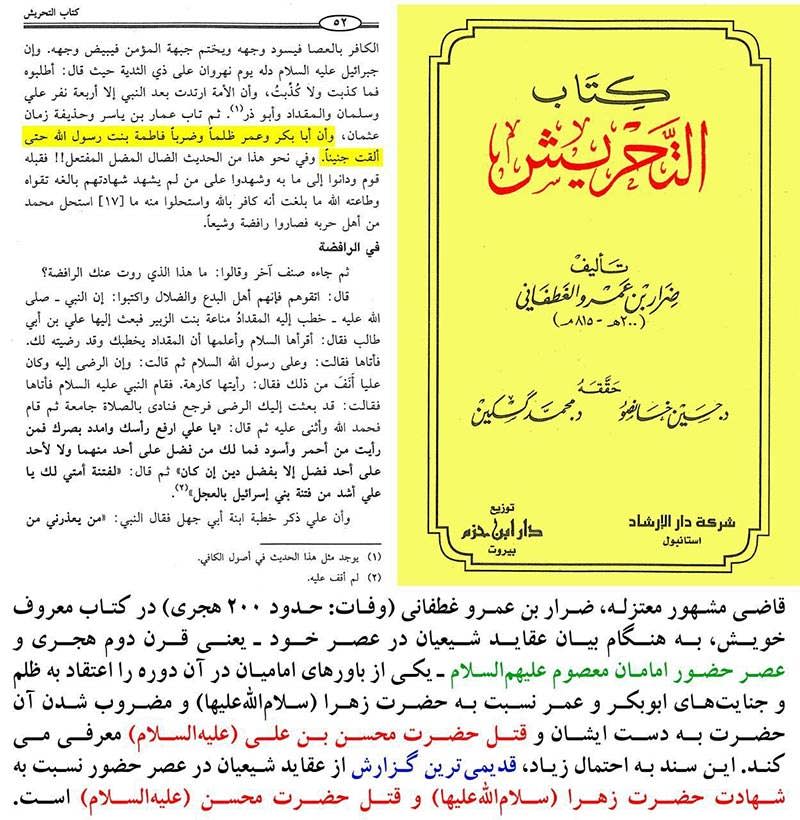 كتاب التحريش
٥٢
الكافر بالعصا فيسود وجهه ويختم جبهة المؤمن فيبيض وجهه. وإن
جبرائيل عليه السلام دله يوم نهروان على ذي الثدية حيث قال: أطلبوه
فما كذبت ولا كُذّبتُ، وأن الأمة ارتدت بعد النبي إلا أربعة نفر علي
وسلمان والمقداد وأبو ذر(١). ثم تاب عمار بن ياسر وحذيفة زمان
عثمان، وأن أبا بكر وعمر ظلماً وضرباً فاطمة بنت رسول الله حتى
ألقت جنيناً. وفي نحو هذا من الحديث الضال المضل المفتعل!! فقبله
قوم ودانوا إلى ما به وشهدوا على من لم يشهد شهادتهم بالغه تقواه
وطاعته الله ما بلغت أنه كافر بالله واستحلوا منه ما [١٧] استحل محمد
من أهل حربه فصاروا رافضة وشيعاً.
في الرافضة
ثم جاءه صنف آخر وقالوا: ما هذا الذي روت عنك الرافضة؟
قال: اتقوهم فإنهم أهل البدع والضلال واكتبوا: إن النبي ـ صلى
الله عليه ـ خطب إليه المقدادُ مناعة بنت الزبير فبعث إليها علي بن أبي
طالب فقال: أقرأها السلام وأعلمها أن المقداد يخطبك وقد رضيته لك.
فأتاها فقالت: وعلى رسول الله السلام ثم قالت: وإن الرضى إليه وكان
عليا أَنَفَ من ذلك فقال: رأيتها كارهة. فقام النبي عليه السلام فأتاها
فقالت: قد بعثت إليك الرضى فرجع فنادى بالصلاة جامعة ثم قام
فحمد الله وأثنى عليه ثم قال: «يا علي ارفع رأسك وامدد بصرك فمن
رأيت من أحمر وأسود فما لك من فضل على أحد منهما ولا لأحد
على أحد فضل إلا بفضل دين إن كان» ثم قال: «لفتنة أمتي لك يا
علي أشد من فتنة بني إسرائيل بالعجل»(٢).
وأن علي ذكر خطبة ابنة أبي جهل فقال النبي: «من يعذرني من
(١) يوجد مثل هذا الحديث في أصول الكافي.
(٢) لم أقف عليه.
كِتَاب
التَّحْرِيش
تأليف
ضِرَار بن عَمرو الغَطَفَاني
(٢٠٠هـ - ٨١٥مـ)
حَقَّقَهُ
د. حسين خانصو د. محمد كسكين
شركة دار الإرشاد
استانبول
توزيع
دار ابن حزم
بيروت
قاضی مشهور معتزله، ضرار بن عمرو غطفانی (وفات: حدود ۲۰۰ هجری) در کتاب معروف
خویش، به هنگام بیان عقاید شیعیان در عصر خود ـ یعنی قرن دوم هجری و
عصر حضور امامان معصوم علیهم‌السلام ـ یکی از باورهای امامیان در آن دوره را اعتقاد به ظلم
و جنایت‌های ابوبکر و عمر نسبت به حضرت زهرا (سلام‌الله‌علیها) و مضروب شدن آن
حضرت به دست ایشان و قتل حضرت محسن بن علی (علیه‌السلام) معرفی می
کند. این سند به احتمال زیاد، قدیمی‌ترین گزارش از عقاید شیعیان در عصر حضور نسبت به
شهادت حضرت زهرا (سلام‌الله‌علیها) و قتل حضرت محسن (علیه‌السلام) است.